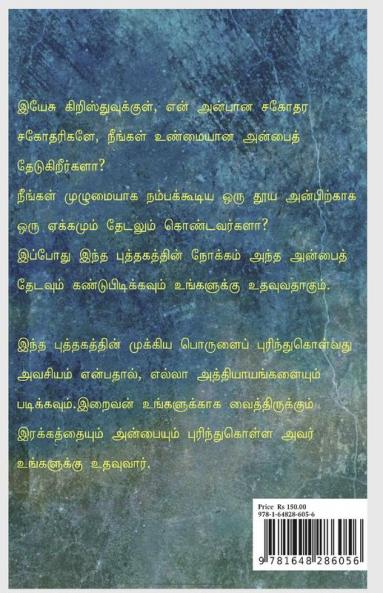 இயேசு கிறிஸ்துவுக்குள், என் அன்பான சகோதர
சகோதரிகளே, நீங்கள் உண்மையான அன்பைத்
தேடுகிறீர்களா?
நீங்கள் முழுமையாக நம்பக்கூடிய ஒரு தூய அன்பிற்காக
ஒரு ஏக்கமும் தேடலும் கொண்டவர்களா?
இப்போது இந்த புத்தகத்தின் நோக்கம் அந்த அன்பைத்
தேடவும் கண்டுபிடிக்கவும் உங்களுக்கு உதவுவதாகும்.
இந்த புத்தகத்தின் முக்கிய பொருளைப் புரிந்துகொள்வது
அவசியம் என்பதால், எல்லா அத்தியாயங்களையும்
படிக்கவும்.இறைவன் உங்களுக்காக வைத்திருக்கும்
இரக்கத்தையும் அன்பையும் புரிந்துகொள்ள அவர்
உங்களுக்கு உதவுவார்.
Price Rs 150.00
978-1-64828-605-6
9 781648 286056